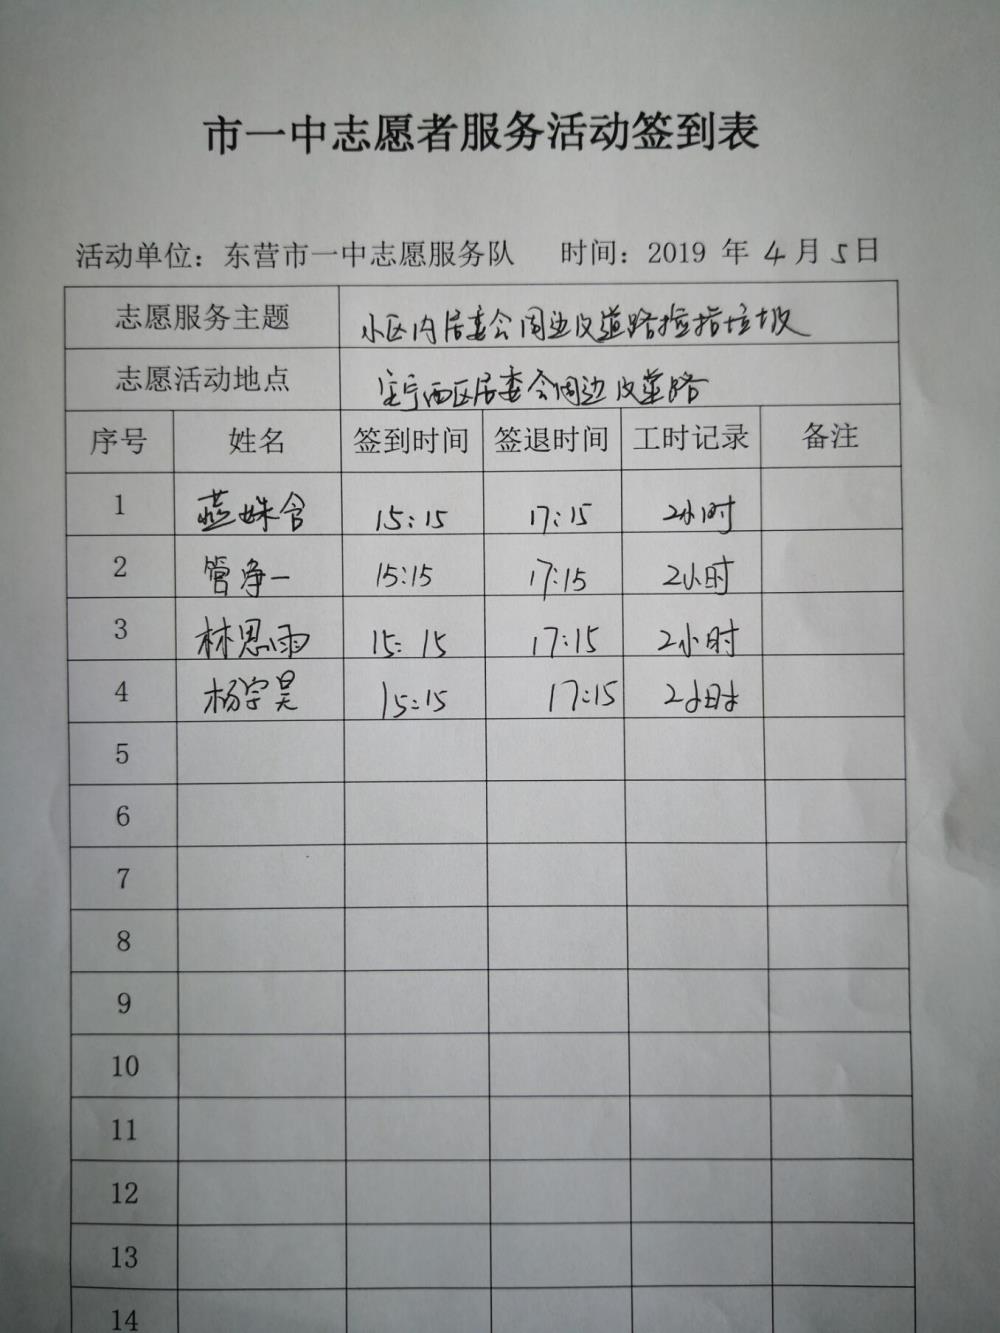 市一中志愿者服务活动签到表
活动单位：东营市一中志愿服务队 时间：2019 年 4 月 5 日
志愿服务主题 小区内居委会周边及道路捡拾垃圾
志愿活动地点 宁西区居委会周边及道路
序号 姓名 签到时间 签退时间 工时记录 备注
1 燕姝含 15:15 17:15 2小时
2 管净一 15:15 17:15 2小时
3 林思雨 15:15 17:15 2小时
4 杨宇昊 15:15 17:15 2小时
5
6
7
8
9
10
11
12
13
14